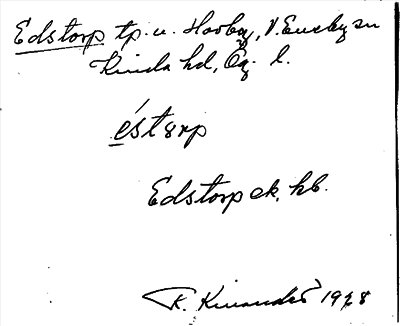 Edstorp tp. u. Hovby, V. Eneby sn
Kinda hd, Ög. l.
éstørp
Edstorp ek, hb.
K. Kinander 1928